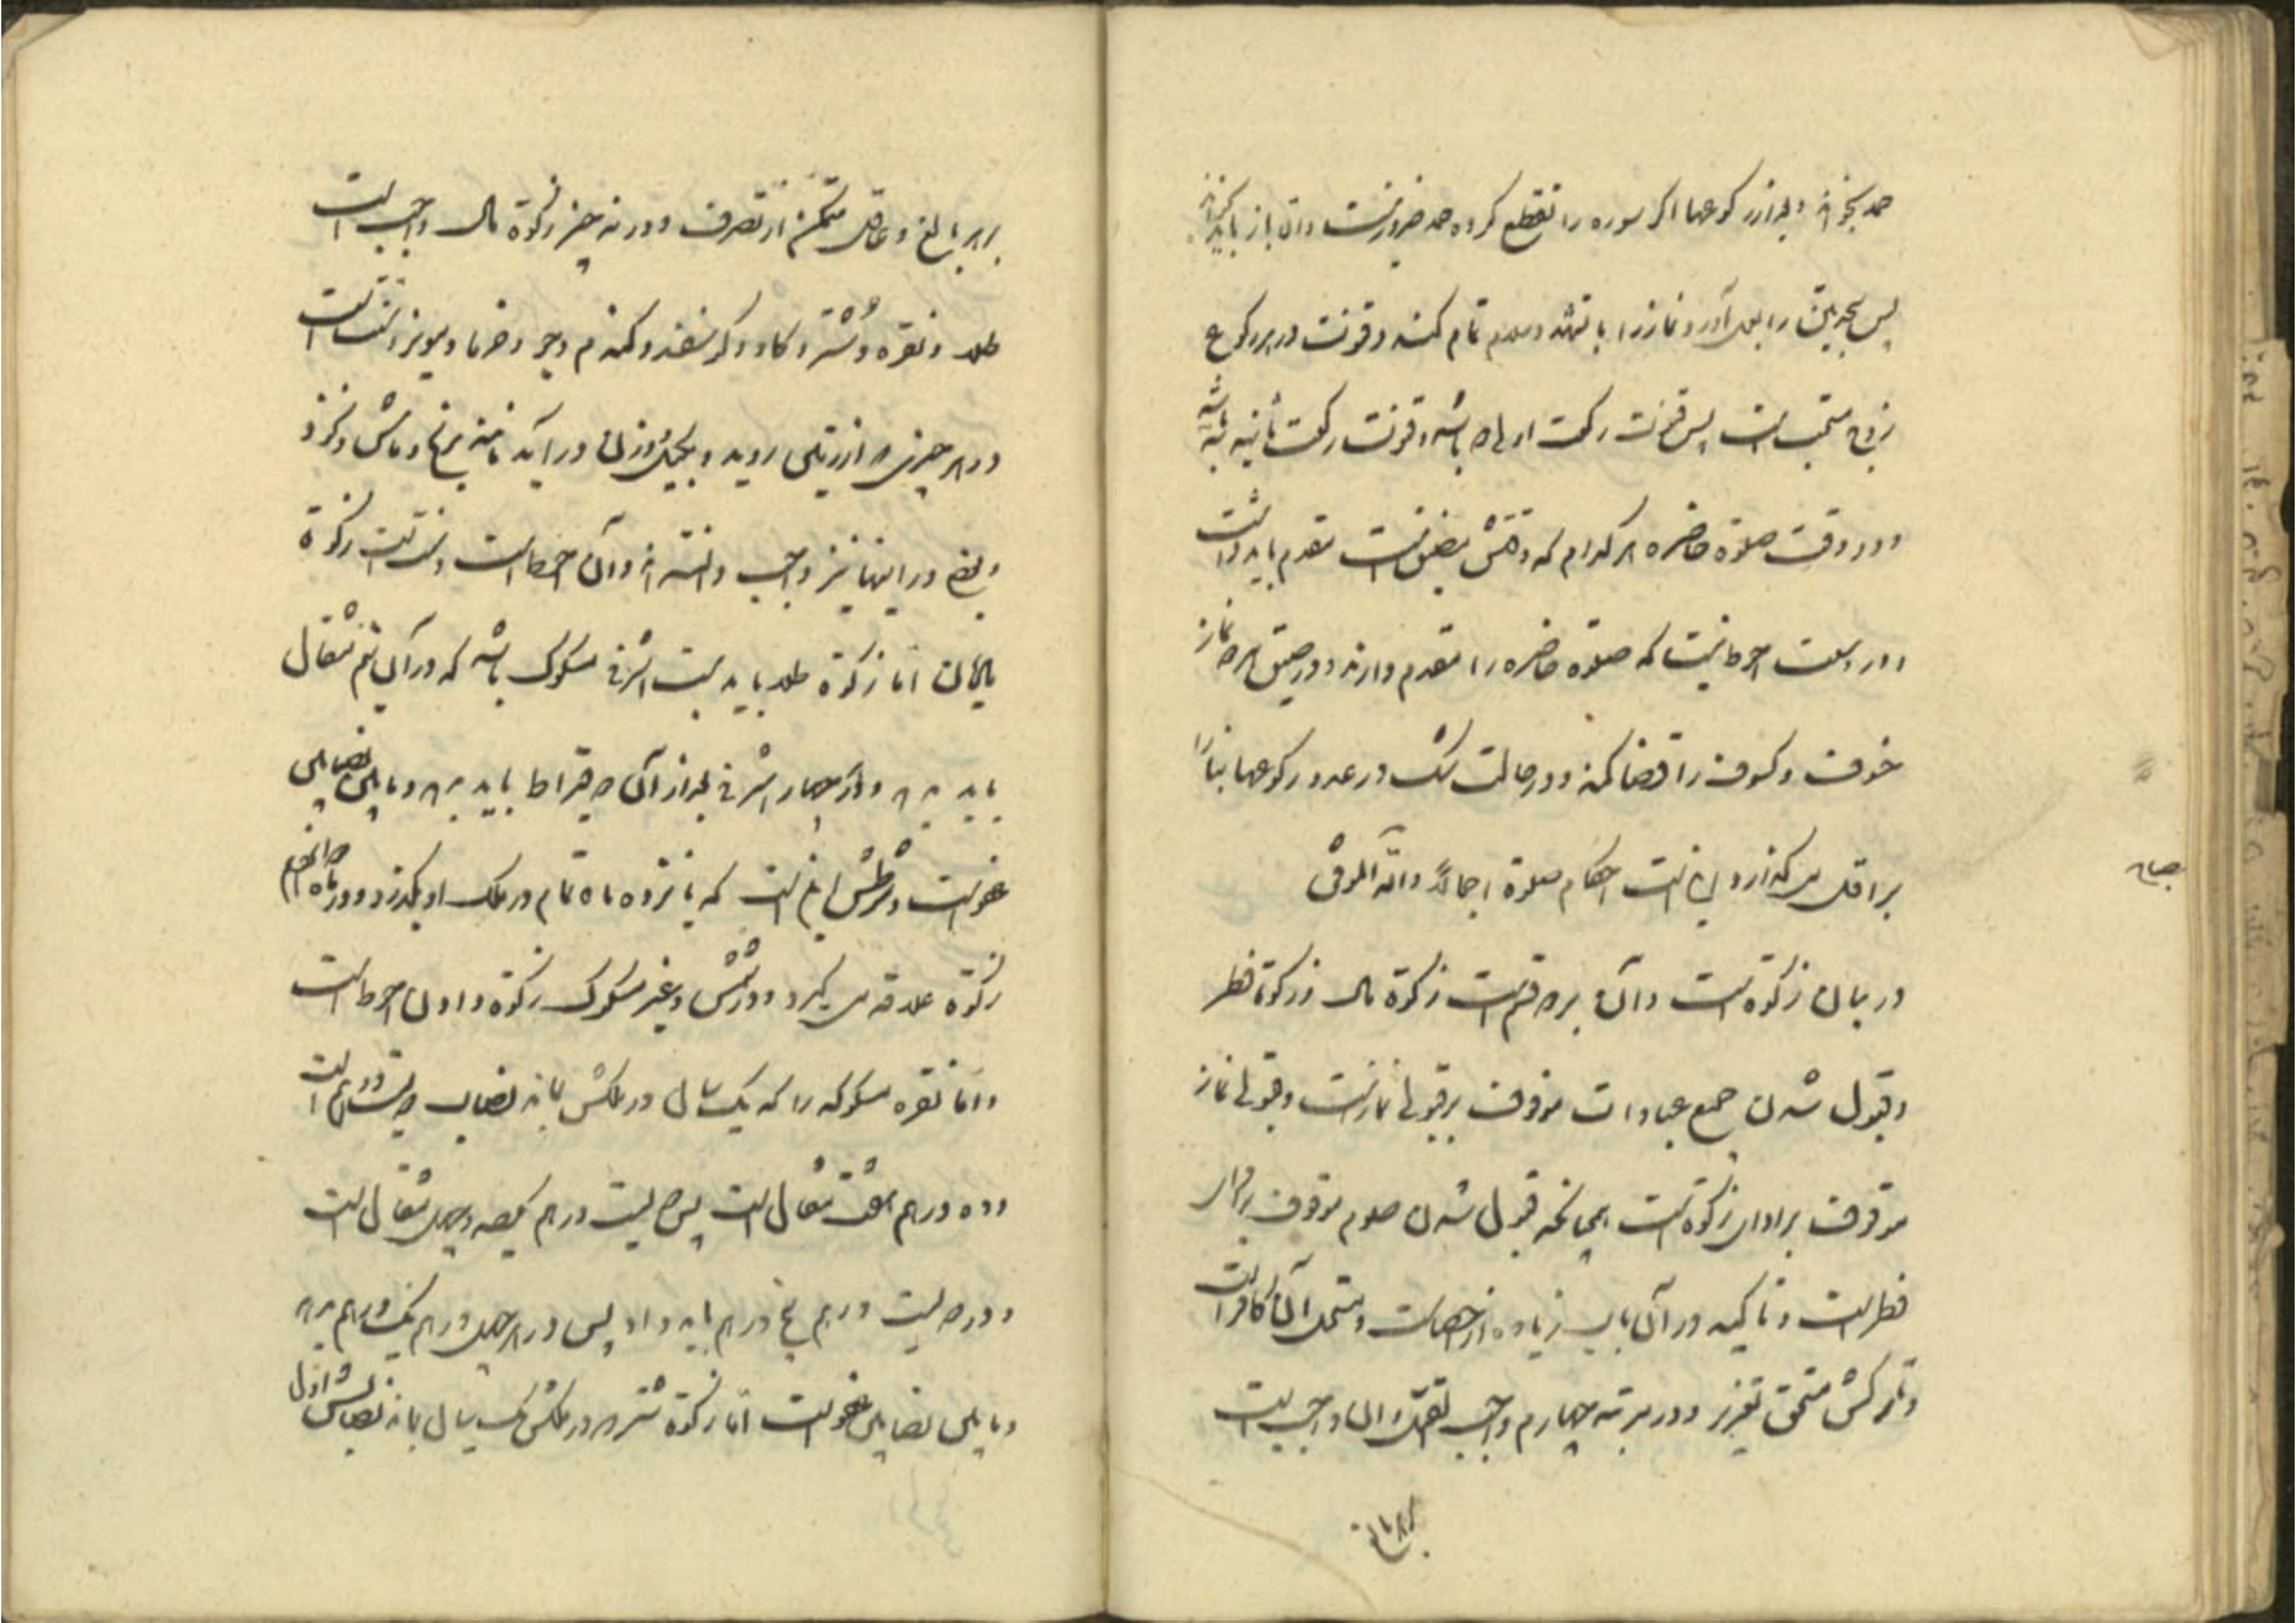 حمد بخواند و بعد از رکوعها اگر سوره را تقطیع کرده حمد ضرور نیست و الا باز باید بخواند
پس سجدتین را بعمل آورد و نماز را با تشهد و سلام تمام کند و قنوت در هر رکوع
زوج مستحب است پس قنوت رکعت اولی دو باشد و قنوت رکعت ثانیه سه باشد
و در وقت صلوة حاضره هر کدام که وقتش مضیق است مقدم باید داشت
و در وسعت احوط آنست که صلوة حاضره را مقدم دارند و در ضیق هر دو نماز
خسوف و کسوف را قضا کند و در حالت شک در عدد رکوعها بنا را
بر اقل میگذارد این است احکام صلوة اجمالاً والله الموفق
در بیان زکوة است و آن بر دو قسم است زکوة مال و زکوة فطر
و قبول شدن جمیع عبادات موقوف بر قبولی نماز است و قبولی نماز
موقوف بر ادای زکوة است همچنانکه قبول شدن صوم موقوف بر
فطر است و تاکید در آن باب زیاده از احصا است و مستحل آن کافر است
و تارکش مستحق تعزیر و در مرتبه چهارم واجب القتل و الا واجب است
بر هر بالغ و عاقل متمکن از تصرف و در نه چیز زکوة مال واجب است
طلا و نقره و شتر و گاو و گوسفند و گندم و جو و خرما و مویز و سنت است
در هر چیزی که از زمین روید و بکیل و وزن در آید مانند برنج و ماش و نخود
و بعضی در اینها نیز واجب دانسته اند و آن احوط است و سنت است زکوة
مال اما زکوة طلا باید بیست اشرفی مسکوک باشد که در آن نیم مثقال
باید بدهد و در هر چهار اشرفی بعد از آن دو قیراط باید بدهد و مابین نصابین
عفو است و شرطش این است که یازده ماه تمام در ملک او بگذرد و در ماه دوازدهم
زکوة علاقه میگیرد و در شمش و غیر مسکوک زکوة دادن احوط است
و اما نقره مسکوکه را که یک سال در ملکش بماند نصاب دویست درهم است
و ده درهم هفت مثقال است پس دویست درهم یکصد و چهل مثقال است
و در دویست درهم پنج درهم باید داد پس در هر چهل درهم یک درهم بدهد
و مابین نصابین عفو است اما زکوة شتر که در ملکش یک سال بماند نصابش اول